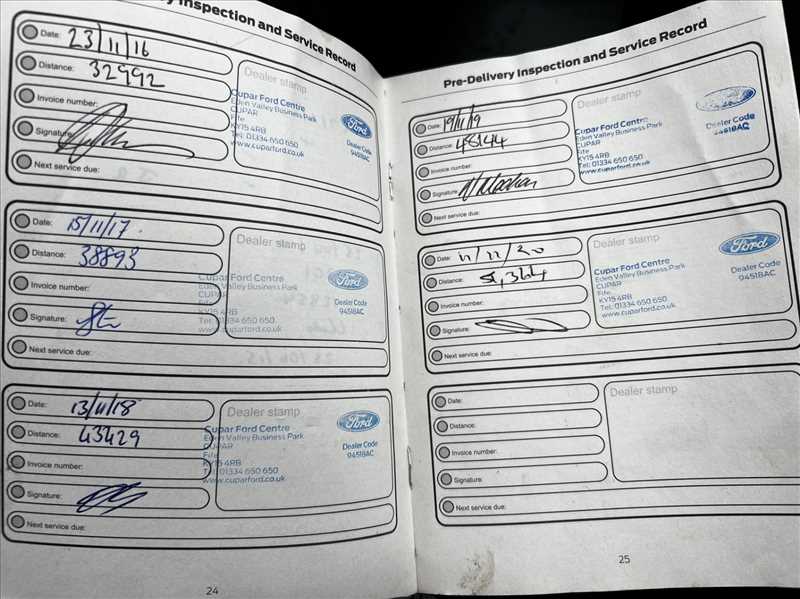 y Inspection and Service Record
Date: 23/11/16
Distance: 32992
Invoice number:
Signature:
Next service due:
Dealer stamp
Cupar Ford Centre
Eden Valley Business Park
CUPAR
Fife
KY15 4RB
Tel: 01334 650 650
www.cuparford.co.uk
Ford
Dealer Code
94518AC
Date: 15/11/17.
Distance: 38893
Invoice number:
Signature:
Next service due:
Dealer stamp
Cupar Ford Centre
Eden Valley Business Park
CUPAR
Fife
KY15 4RB
Tel: 01334 650 650
www.cuparford.co.uk
Ford
Dealer Code
94518AC
Date: 13/11/18
Distance: 43429
Invoice number:
Signature:
Next service due:
Dealer stamp
Cupar Ford Centre
Eden Valley Business Park
CUPAR
Fife
KY15 4RB
Tel: 01334 650 650
www.cuparford.co.uk
Ford
Dealer Code
94518AC
24
Pre-Delivery Inspection and Service Record
Date: 19/11/19
Distance: 48144
Invoice number:
Signature:
Next service due:
Dealer stamp
Cupar Ford Centre
Eden Valley Business Park
CUPAR
Fife
KY15 4RB
Tel: 01334 650 650
www.cuparford.co.uk
Ford
Dealer Code
94518AC
Date:
Distance:
Invoice number:
Signature:
Next service due:
Dealer stamp
Cupar Ford Centre
Eden Valley Business Park
CUPAR
Fife
KY15 4RB
Tel: 01334 650 650
www.cuparford.co.uk
Ford
Dealer Code
94518AC
Date:
Distance:
Invoice number:
Signature:
Next service due:
Dealer stamp
25